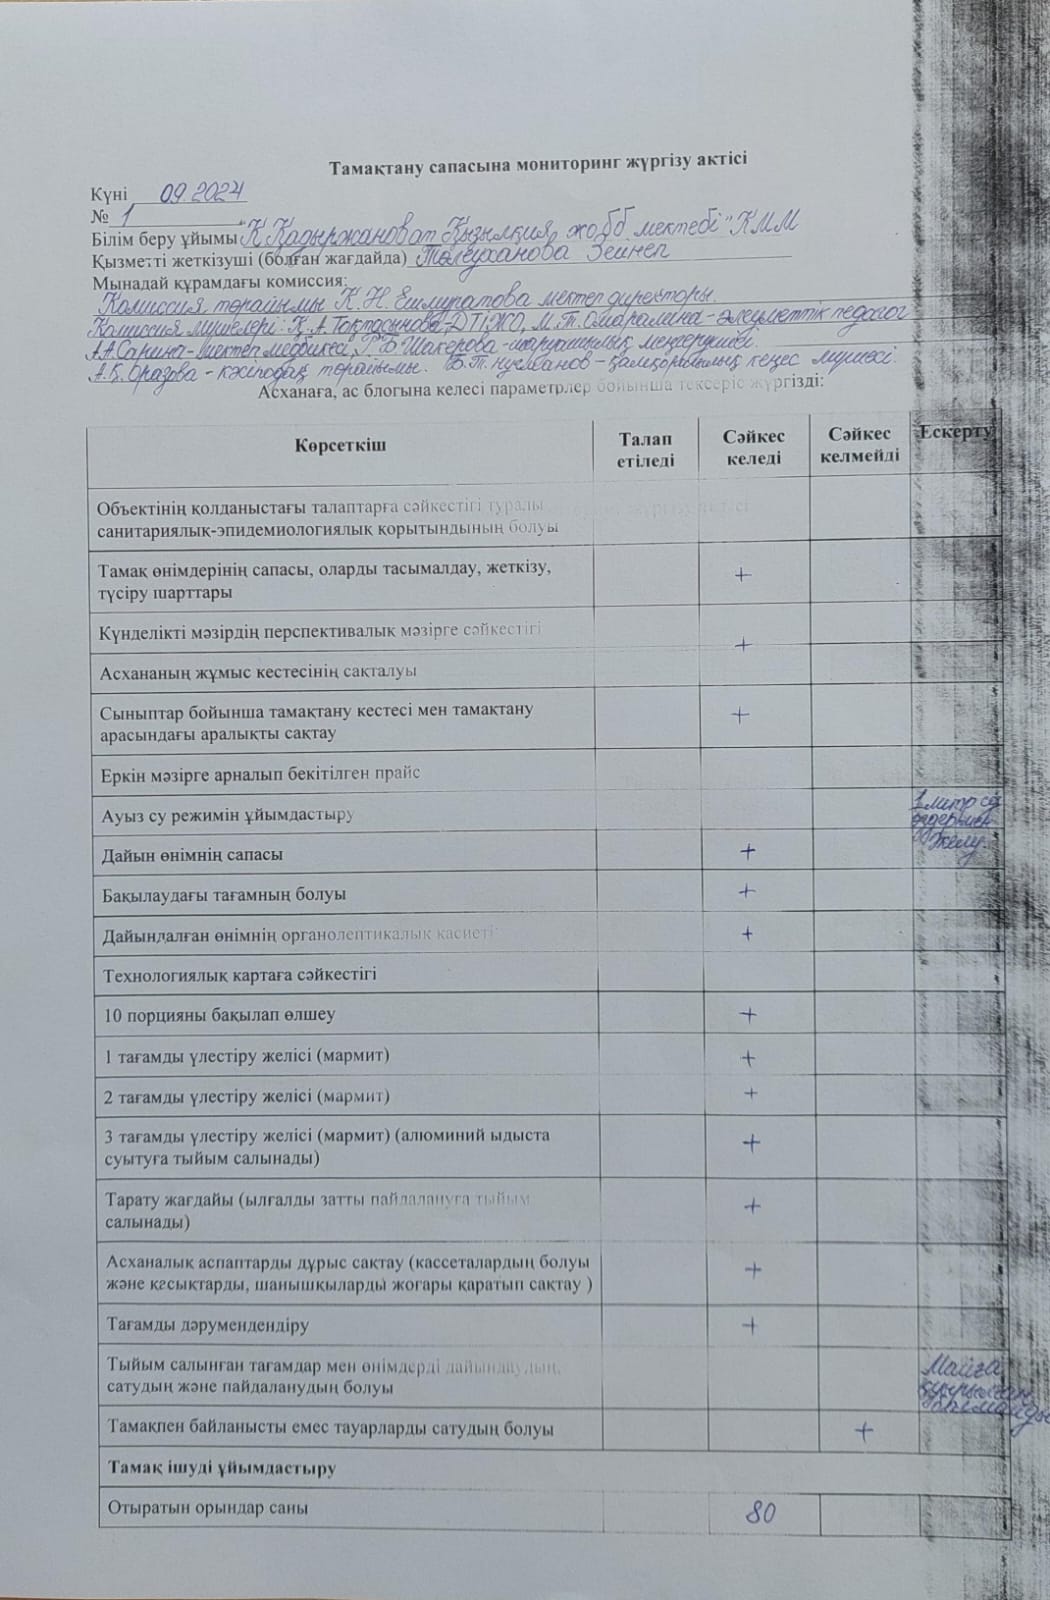 Тамақтану сапасына мониторинг жүргізу актісі
Күні 09.2024
№ 1
Білім беру ұйымы "Қ.Қадыржанов ат Қызылқия жобб мектебі" КММ
Қызметті жеткізуші (болған жағдайда) Төлеуханова Зейнеп
Мынадай құрамдағы комиссия:
Комиссия төрайымы К. Н. Ешмуратова мектеп директоры.
Комиссия мүшелері: Қ.А. Тоқтасынова, ДТІЖО, М.Т. Омаралина - әлеуметтік педагог
А.А.Сарина - мектеп медбикесі, Г.Б. Шакерова - шаруашылық меңгерушісі.
А.Қ. Оразова - кәсіподақ төрайымы. Б.Т. - қамқоршылық кеңес мүшесі.
Асханаға, ас блогына келесі параметрлер бойынша тексеріс жүргізді:
Көрсеткіш Талап Сәйкес Сәйкес Ескерту
етіледі келеді келмейді
Объектінің қолданыстағы талаптарға сәйкестігі туралы
санитариялық-эпидемиологиялық қорытындының болуы
Тамақ өнімдерінің сапасы, оларды тасымалдау, жеткізу, +
түсіру шарттары
Күнделікті мәзірдің перспективалық мәзірге сәйкестігі +
Асхананың жұмыс кестесінің сақталуы
Сыныптар бойынша тамақтану кестесі мен тамақтану +
арасындағы аралықты сақтау
Еркін мәзірге арналып бекітілген прайс
Ауыз су режимін ұйымдастыру 1 литр су
өздерімен
Дайын өнімнің сапасы + әкелу.
Бақылаудағы тағамның болуы +
Дайындалған өнімнің органолептикалық касиеті +
Технологиялық картаға сәйкестігі
10 порцияны бақылап өлшеу +
1 тағамды үлестіру желісі (мармит) +
2 тағамды үлестіру желісі (мармит) +
3 тағамды үлестіру желісі (мармит) (алюминий ыдыста +
суытуға тыйым салынады)
Тарату жағдайы (ылғалды затты пайдалануға тыйым +
салынады)
Асханалық аспаптарды дұрыс сақтау (кассеталардың болуы +
және қасықтарды, шанышқыларды жоғары қаратып сақтау )
Тағамды дәрумендендіру +
Тыйым салынған тағамдар мен өнімдерді дайындаудың, Майға
сатудың және пайдаланудың болуы қуырылған
Тамақпен байланысты емес тауарларды сатудың болуы +
Тамақ ішуді ұйымдастыру
Отыратын орындар саны 80